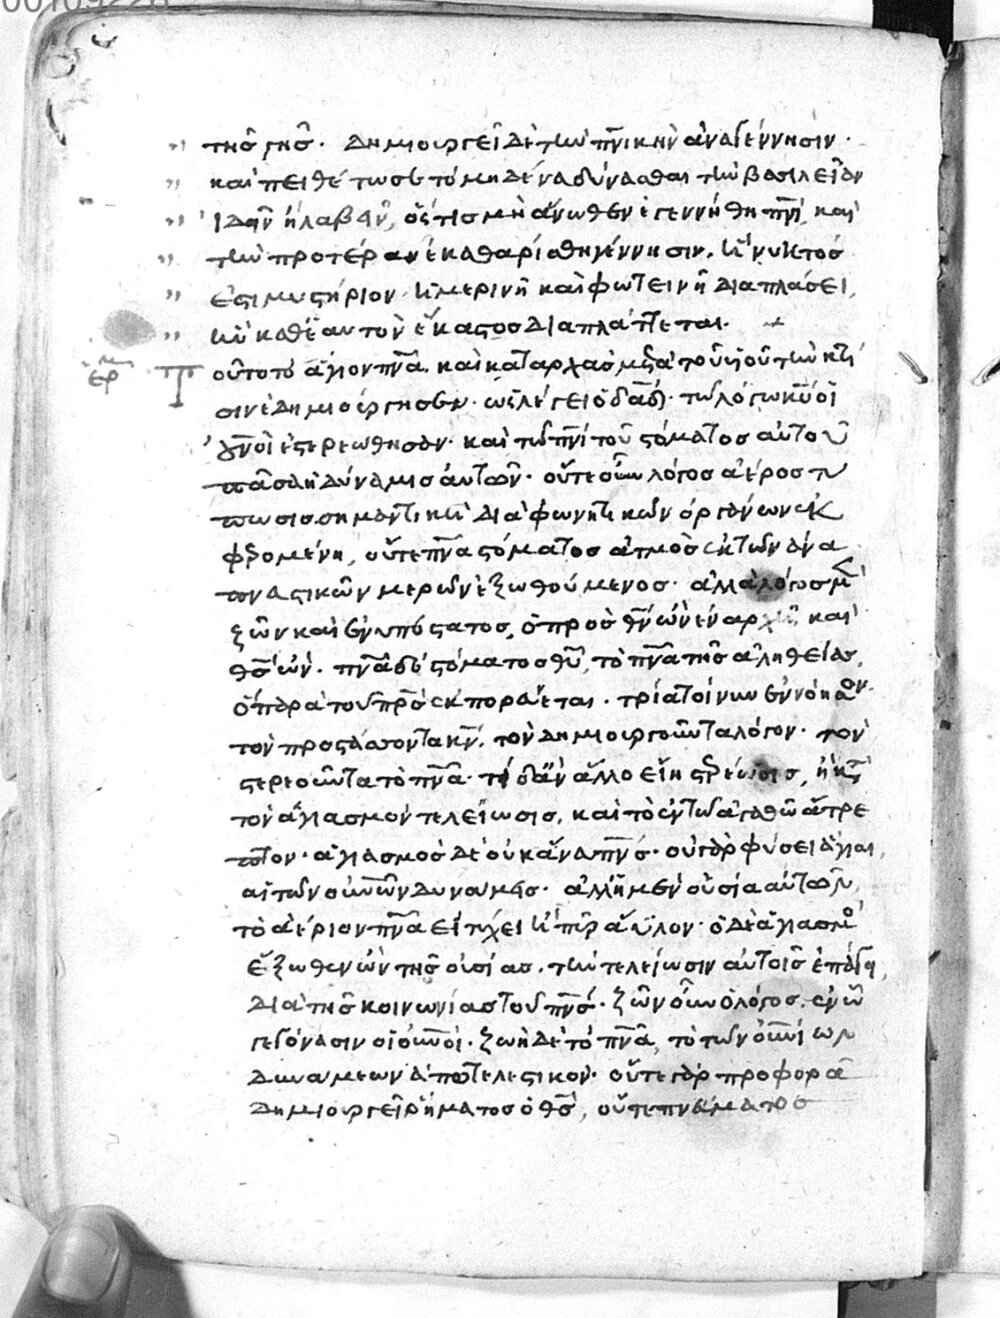 τῆς γῆς· δημιουργεῖ δὲ τὴν πνικὴν ἀναγέννησιν·
καὶ πειθέτω σε τὸ μηδένα δύνασθαι τὴν βασιλείαν
ἰδεῖν ἢ λαβεῖν, ὅστις μὴ ἄνωθεν ἐγεννήθη πνι, καὶ
τὴν προτέραν ἐκαθαρίσθη γέννησιν, ἢ νυκτός
ἐστι μυστήριον· ἡμερινῇ καὶ φωτεινῇ διαπλάσει,
ἣν καθ' ἑαυτὸν ἕκαστος διαπλάττεται· +
Τοῦτο τὸ ἅγιον πνα. καὶ κατ' ἀρχὰς μετὰ τοῦ υἱοῦ τὴν κτί
σιν ἐδημιούργησεν· ὡς λέγει ὁ δαδ· τῷ λόγῳ κυ οἱ
οὐνοὶ ἐστερεώθησαν· καὶ τῷ πνι τοῦ στόματος αὐτοῦ
πᾶσα ἡ δύναμις αὐτῶν· οὔτε οὖν λόγος ἀέρος τύ
πωσις σημαντικὴ διὰ φωνητικῶν ὀργάνων ἐκ
φερομένη, οὔτε πνα στόματος ἀτμὸς ἐκ τῶν ἀνα
πνευστικῶν μερῶν ἐξωθούμενος· ἀλλὰ λόγος μὲν
ζῶν καὶ ἐνυπόστατος, ὁ πρὸς θν ὢν ἐν ἀρχῇ, καὶ
θς ὤν· πνα δὲ στόματος θυ, τὸ πνα τῆς ἀληθείας,
ὃ παρὰ τοῦ πρς ἐκπορεύεται· τρία τοίνυν ἐννόησον·
τὸν προστάσσοντα κν, τὸν δημιουργοῦντα λόγον· τὸν
στερεοῦντα τὸ πνα· τί δ' ἂν ἄλλο εἴη στερέωσις, ἢ κατὰ
τὸν ἁγιασμὸν τελείωσις, καὶ τὸ ἐν τῷ ἀγαθῷ ἄτρε
πτον· ἁγιασμὸς δὲ οὐκ ἄνευ πνς· οὐ γὰρ φύσει ἅγιαι,
αἱ τῶν οὐνῶν δυνάμεις· ἀλλ' ἡ μὲν οὐσία αὐτῶν,
τὸ ἀέριον πνα εἰ τύχει ἢ πῦρ ἄϋλον· ὁ δὲ ἁγιασμὸς
ἔξωθεν ὢν τῆς οὐσίας, τὴν τελείωσιν αὐτοῖς ἐπάγει,
διὰ τῆς κοινωνίας τοῦ πνς· ζῶν οὖν ὁ λόγος, ἐν ᾧ
γεγόνασιν οἱ οὐνοί· ζωὴ δὲ τὸ πνα, τὸ τῶν οὐνίων
δυνάμεων ἀποτελεστικόν· οὔτε γὰρ προφορᾷ
δημιουργεῖ ῥήματος ὁ θς, οὔτε πνεύματος